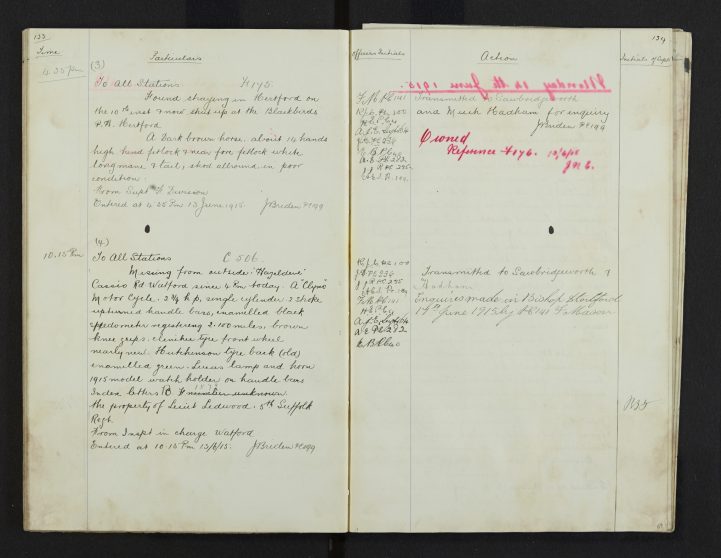 133
Time
Particulars
4.35 Pm
(3)
To All Stations H175.
Found straying in Hertford on
the 10th inst & now shut up at the Blackbirds
P.H. Hertford
A Dark brown horse, about 14 hands
high hind fetlock & near fore fetlock white
long mane & tail, shod allround in poor
condition.
From Supt H Division
Entered at 4.35 Pm 13 June 1915. J Breden PC 199
10.15 Pm
(4)
To All Stations C 506.
Missing from outside "Hazeldene"
Cassio Rd Watford since 6 Pm today. A "Clyno"
Motor Cycle. 2¾ h.p. single cylinder. 2 stroke
upturned handle bars, enamelled black
speedometer registering 2,150 miles, brown
knee grips. Clincher tyre front wheel
nearly new. Hutchinson tyre back (old)
enamelled green. Lucas lamp and horn
1915 model watch holder on handle bars
Index letters B number unknown.
the property of Lieut Ledwood. 5th Suffolk
Regt.
From Inspt in charge Watford
Entered at 10.15 Pm 13/6/15. J Breden PC 199
134
Officers Initials
Action
Initials of Supt
Monday 14th June 1915.
Transmitted to Sawbridgeworth
and Much Hadham for enquiry
J Breden PC 199
Owned
Reference H176.
Transmitted to Sawbridgeworth &
Hadham
Enquiries made in Bishop Stortford
14th June 1915 by PC 141 F. Mason